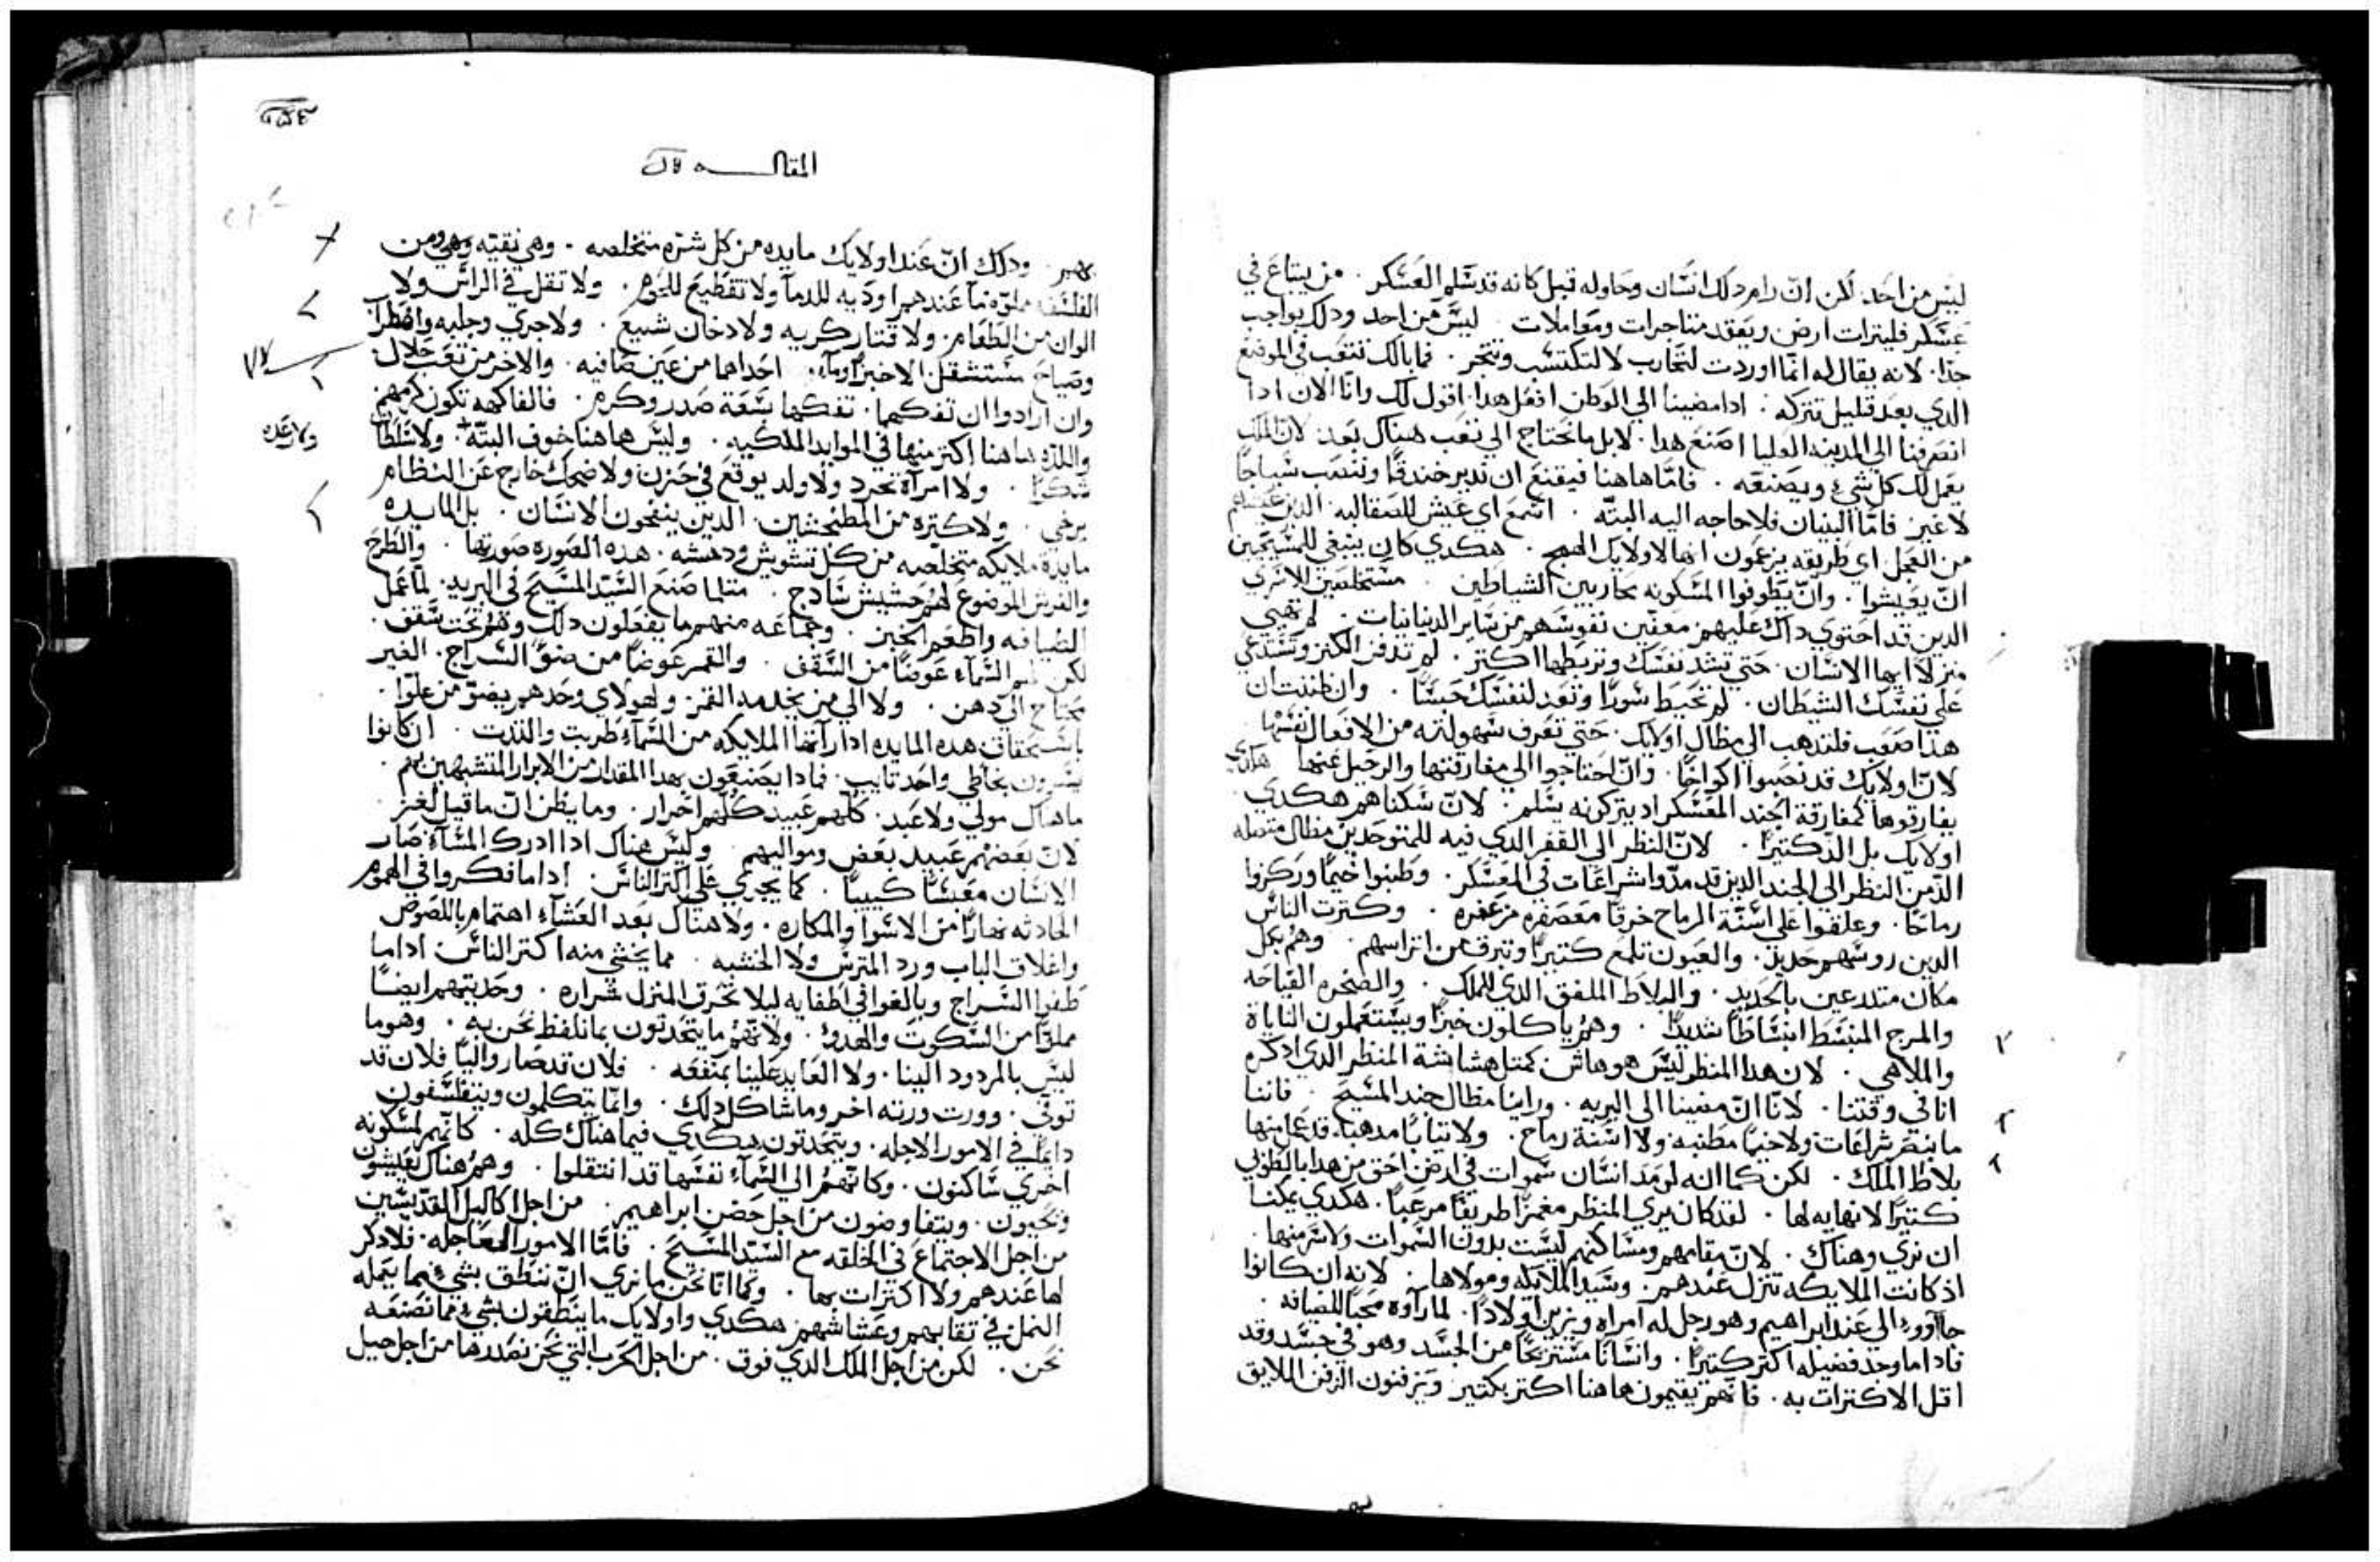 ليس من احد. لكن ان رام دلك انسان وحاوله قبل كانه قد سلم العسكر. من يبتاع في
عسكر فليترات ارض ويعقد متاجرات ومعاملات. ليس من احد ودلك بواجب
جدا. لانه يقال له انما اوردت لتحارب لا لتكتسب وتتجر. فما بالك تتعب في الموضع
الدي بعد قليل تتركه. ادا مضينا الي الوطن افعل هدا. اقول لك وانا الان ادا
انصرفنا الي المدينه العليا اصنع هدا. لا بل ما تحتاج الي تعب هناك بعد. لان الملك
يعمل لك كل شيء ويصنعه. فاما هاهنا فيقنع ان ندير خندقا وننصب سياجا
لا غير. فاما البنيان فلا حاجه اليه البته. اسمع اي عيش للصقالبه. الدين
من العجل اي طريقه يزعمون انها لاولايك الهمج. هكدي كان ينبغي للمسيحيين
ان يعيشوا. وان يطوفوا المسكونه محاربين الشياطين. مستخلصين الاسري
الدين قد احتوي داك عليهم معفين نفوسهم من ساير الدنيانيات. لم تهيي
منزلا ايها الانسان. حتي تشد نفسك وتربطها اكتر. لم تدفن الكنز وتستدعي
علي نفسك الشيطان. لم تحيط سورا وتعد لنفسك حبسا. وان ظننت ان
هدا صعب فلندهب الي مظال اولايك. حتي نعرف سهولته من الافعال نفسها
لان اولايك قد نصبوا اكواخا. وان احتاجوا الي مفارقتها والرحيل عنها هكدي
يفارقوها كمفارقة الجند المعسكر اد يتركونه بسلم. لان سكناهم هكدي
اولايك بل الد كتيرا. لان النظر الي القفر الدي فيه للمتوحدين مظال متصله
الد من النظر الي الجند الدين قد مدوا شراعات في المعسكر. وطنبوا خيما وركزوا
رماحا. وعلقوا علي اسنة الرماح خرقا معصفره مزعفره. وكترت الناس
الدين روسهم حديد. والعيون تلمع كتيرا وتبرق من اتراسهم. وهم بكل
مكان متدرعين بالحديد. والبلاط الملفق الدي للملك. والصحره الفياحه
والمرج المنبسط انبساطا شديدا. وهم ياكلون خبزا ويستعملون الناياة
والملاهي. لان هدا المنظر ليس هو هاش كمتل هشاشة المنظر الدي ادكره
انا في وقتنا. لانا ان مضينا الي البريه. وراينا مظال جند المسيح. فاننا
ما نبصر شراعات ولا خيما مطنبه ولا اسنة رماح. ولا تيابا مدهبه. قد عمل منها
بلاط الملك. لكن كما انه لو مد انسان سموات في ارض احق من هدا بالطوبي
كتيرا لا نهايه لها. لقد كان يري المنظر مغمزا طريفا مرعبا. هكدي يمكننا
ان نري وهناك. لان مقامهم ومساكنهم ليست بدون السموات ولا شر منها.
اد كانت الملايكه تنزل عندهم. وسيد الملايكه ومولاها. لانه ان كانوا
جاووا الي عند ابراهيم وهو رجل له امراه ويزين اولادا. لما راوه محبا للضيافه.
فادا ما وجد فضيله اكتر كتيرا. وانسانا مستريحا من الجسد وهو في جسد وقد
اقل الاكترات به. فانهم يقيمون هاهنا اكتر بكتير ويزفنون الزفن اللايق
المقاله
بهم. ودلك ان عند اولايك مايده من كل شره متخلصه. وهي نقيه وهي من
الفلسفه مملوه. ما عندهم اوديه للدما ولا تقطيع للحوم. ولا تقل في الراس ولا
الوان من الطعام. ولا قتار كريه ولا دخان شنيع. ولا جري وجلبه واضطراب
وصياح مستتقل. الا خبز وماء. احداهما من عين صافيه. والاخر من تعب حلال.
وان ارادوا ان تفكهم. تفكها سعة صدر وكرم. فالفاكهه تكون كرمهم
واللده هاهنا اكتر منها في الموايد الملكيه. وليس هاهنا خوف البته. ولا سلطان
ولا رعده
شكرا. ولا امراة تحرد ولا ولد يوقع في حزن ولا ضحك خارج عن النظام
يرخي. ولا كتره من المطنجتين. الدين ينفخون الانسان. بل المايده
مايدة ملايكه متخلصه من كل تشويش ودهشه. هده الصوره صورتها. والطرح
والفرش الموضوع لهم حشيش سادج. متلما صنع السيد المسيح في البريه. لما عمل
الضيافه واطعم الخبز. وجماعه منهم ما يفعلون دلك وهم تحت سقف.
لكن لهم السماء عوضا من السقف. والقمر عوضا من ضوء السراج. الغير
محتاج الي دهن. ولا الي من يخدمه. القمر. ولهولاي وحدهم يضو من علوا.
باستحقاق هده المايده ادا راتها الملايكه من السماء طربت والتدت. ان كانوا
يسرون بخاطي واحد تايب. فمادا يصنعون بهدا المقدار من الابرار المتشبهين بهم.
ما هناك مولي ولا عبد. كلهم عبيد كلهم احرار. وما يظن ان ما قيل لغز.
لان بعضهم عبيد بعض ومواليهم. وليس هناك ادا ادرك المساء صار
الانسان معبسا كييبا. كما يجري علي اكتر الناس. ادا ما فكروا في الهموم
الحادته نهارا من الاسوا والمكاره. ولا هناك بعد العشاء اهتمام باللصوص
واغلاق الباب ورد المترس ولا الخشبه. مما يخشي منه اكتر الناس. ادا ما
طفوا السراج وبالغوا في اطفايه ليلا تحرق المنزل شراره. وحديتهم ايضا
مملوا من السكوت والهدو. ولانهم ما يتحدتون بما نلفظ نحن به. وهو ما
ليس بالمردود الينا. ولا العايد علينا بمنفعه. فلان قد صار واليا فلان قد
توفي. وورت ورتته اخر وما شاكل دلك. وانما يتكلمون ويتفلسفون
دايما في الامور الاجله. ويتحدتون هكدي فيما هناك كله. كانهم لمسكونه
اخري ساكنون. وكانهم الي السماء نفسها قد انتقلوا. وهم هناك يعيشون
ويحيون. ويتفاوضون من اجل حضن ابراهيم. من اجل اكاليل القديسين
من اجل الاجتماع في الخلقه مع السيد المسيح. فاما الامور العاجله. فلا دكر
لها عندهم ولا اكترات بها. وكما انا نحن ما نري ان ننطق بشيء مما يعمله
النمل في تقابهم وعشاشهم. هكدي واولايك ما ينطقون بشيء مما نصنعه
نحن. لكن من اجل الملك الدي فوق. من اجل الحرب التي نحن نصددها من اجل حيل